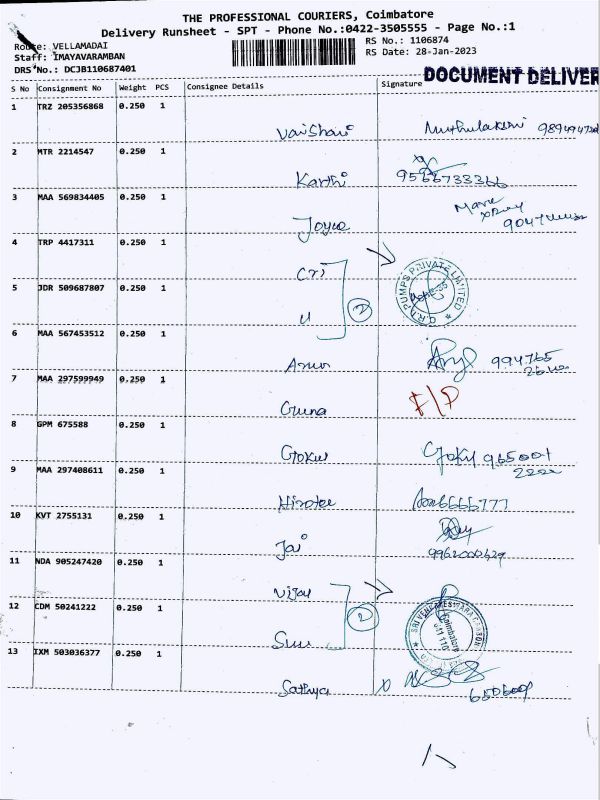 THE PROFESSIONAL COURIERS, Coimbatore
Delivery Runsheet - SPT - Phone No.:0422-3505555 - Page No.:1
Route: VELLAMADAI
RS No.: 1106874
Staff: IMAYAVARAMBAN
RS Date: 28-Jan-2023
DRS No.: DCJB110687401
DOCUMENT DELIVER
S No Consignment No Weight PCS Consignee Details Signature
1 TRZ 205356868 0.250 1
Vaishavi Muthulakshmi
2 MTR 2214547 0.250 1
Karthi 9566733366
3 MAA 569834405 0.250 1
Joyce
4 TRP 4417311 0.250 1
CRI
PUMPS PRIVATE LIMITED
5 JDR 509687807 0.250 1
u 2
6 MAA 567453512 0.250 1
994765
7 MAA 297599949 0.250 1
Guna F/P
8 GPM 675588 0.250 1
Gokul Gokul 965001
9 MAA 297408611 0.250 1
10 KVT 2755131 0.250 1
Jai
11 NDA 905247420 0.250 1
Vijay
12 CDM 50241222 0.250 1
2
SRI VENKATESWARA CARBON
Coimbatore
13 IXM 503036377 0.250 1
Sathya